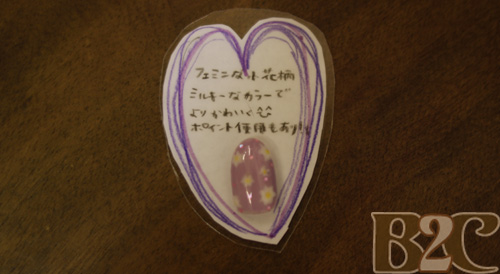 フェミニンな小花柄
ミルキーなカラーで
よりかわいく
ポイント使用もあり!!
B2C